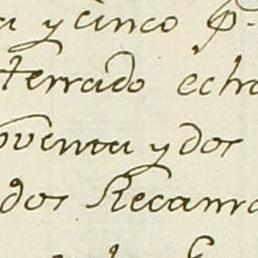 y cinco p.
terrado echa
oventa y dos
dos Recama